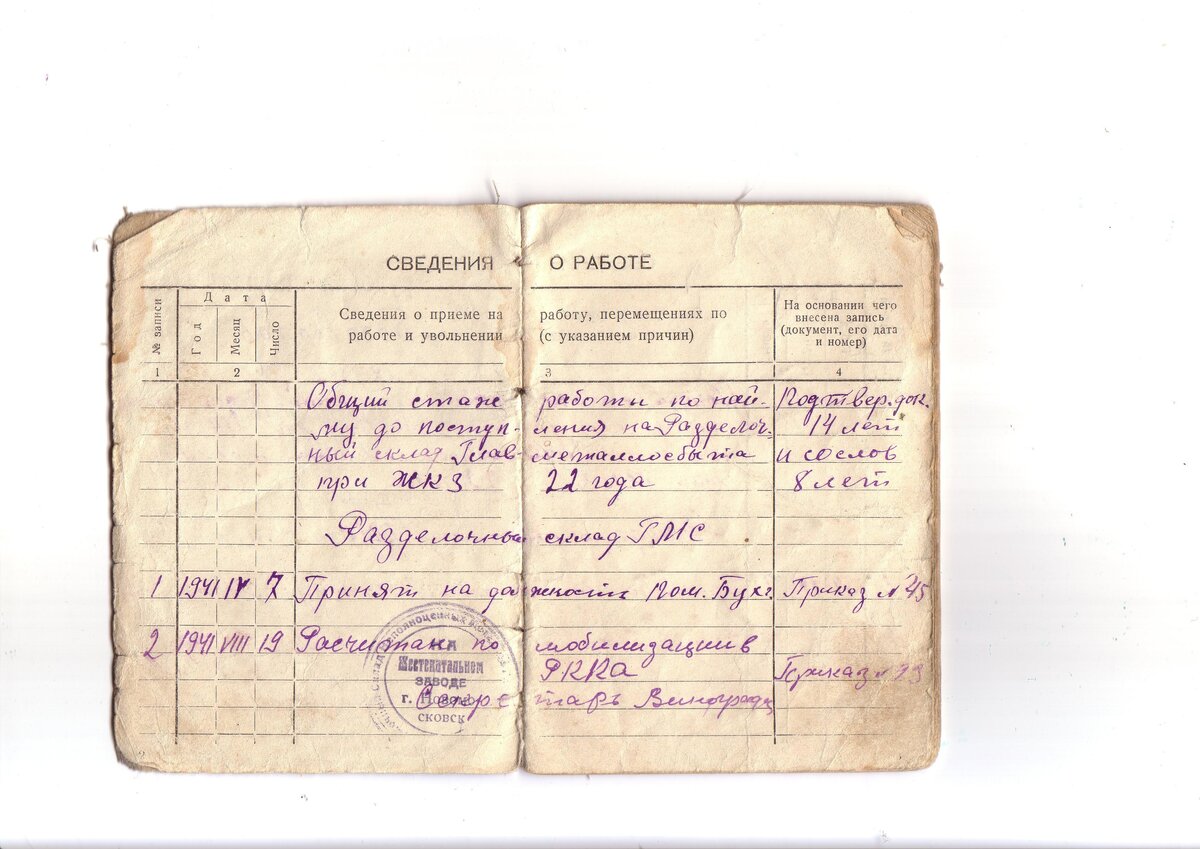 СВЕДЕНИЯ О РАБОТЕ
№ записи
Дата
Год
Месяц
Число
Сведения о приеме на работу, перемещениях по
работе и увольнении (с указанием причин)
На основании чего
внесена запись
(документ, его дата
и номер)
1 2 3 4
Общий стаж работы по най- Подтвер. док.
му до поступ- ления на Разделоч. 14 лет
ный склад Глав- металлосбыта и со слов
при ЖКЗ 22 года 8 лет
Разделочный склад ГМС
1 1941 IV 7 Принят на должность Пом. Бухг. Приказ № 45
2 1941 VIII 19 Расчитан по мобилизации в
РККА Приказ №
Секретарь
НА
Жестекатальном
ЗАВОДЕ
г. Новомо-
сковск